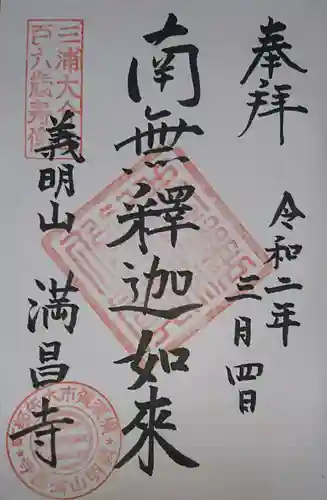 奉拝
令和二年
三月四日
南無釋迦如來
三浦大介
百六歳寿像
義明山
満昌寺